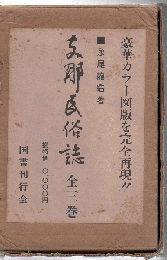 豪華カラー図版を完全再現!!
■永尾龍造著
支那民俗誌 全三巻
国書刊行会